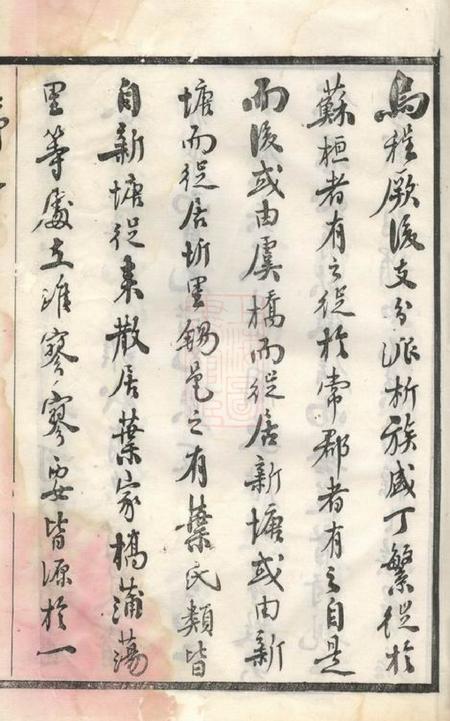 烏程厥後支分派析族盛丁繁從於
蘇桓者有之從於常郡者有之自是
而後或由虞橋而從居新塘或由新
塘而從居圻里錫邑之有葉氏類皆
自新塘從來散居葉家橋蒲蕩
里等處支雖寥寥要皆源於一